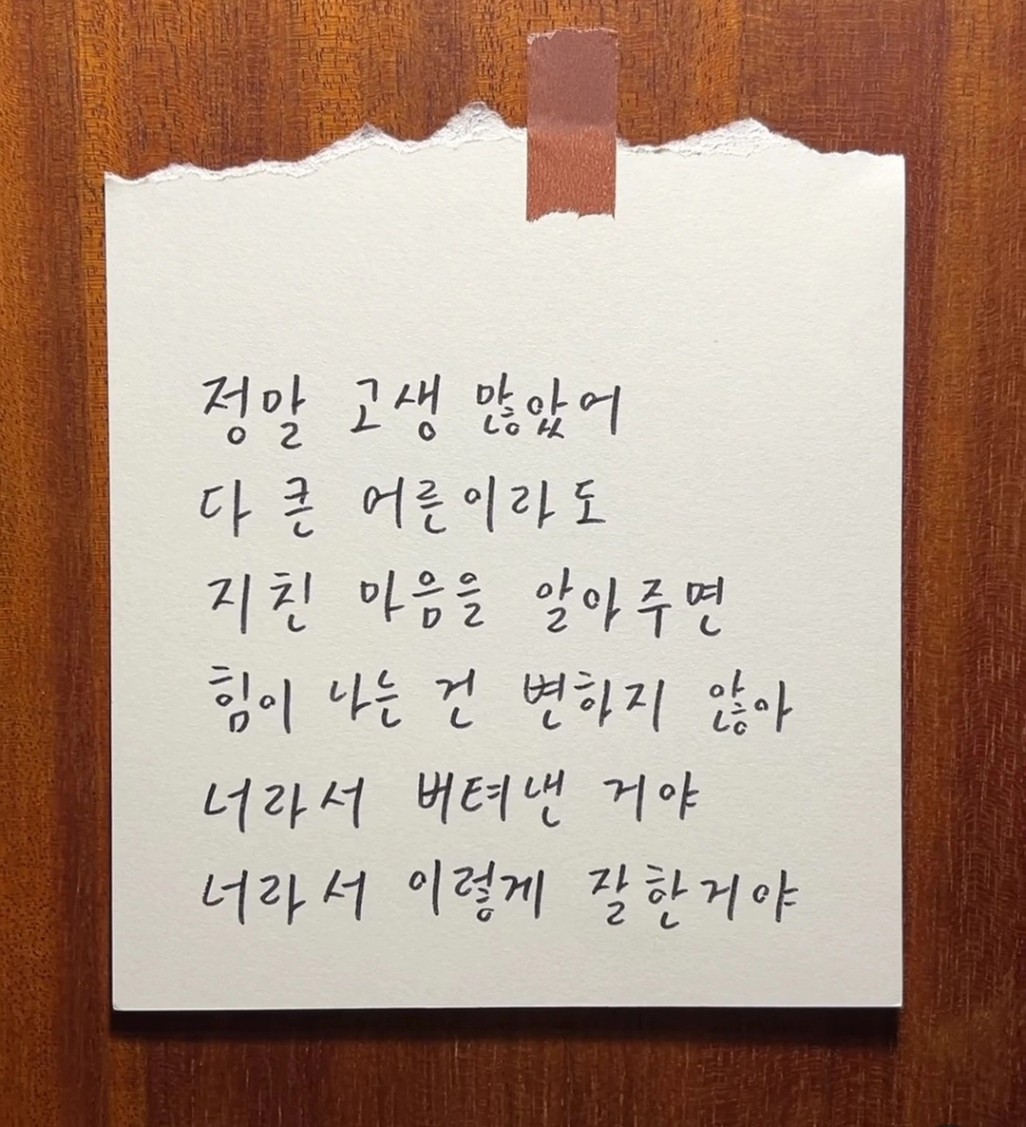 정말 고생 많았어
다 큰 어른이라도
지친 마음을 알아주면
힘이 나는 건 변하지 않아
너라서 버텨낸 거야
너라서 이렇게 잘한거야